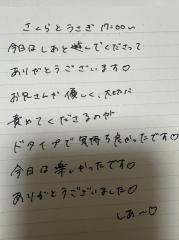 さくらとうさぎ 17:00〜
今日はしあと遊んでくださって
ありがとうございます♡
お兄さんが優しく、大切に
責めてくださるのが
ドタイプで気持ち良かったです♡
今日は楽しかったです♡
ありがとうございました♡
しあ〜♡